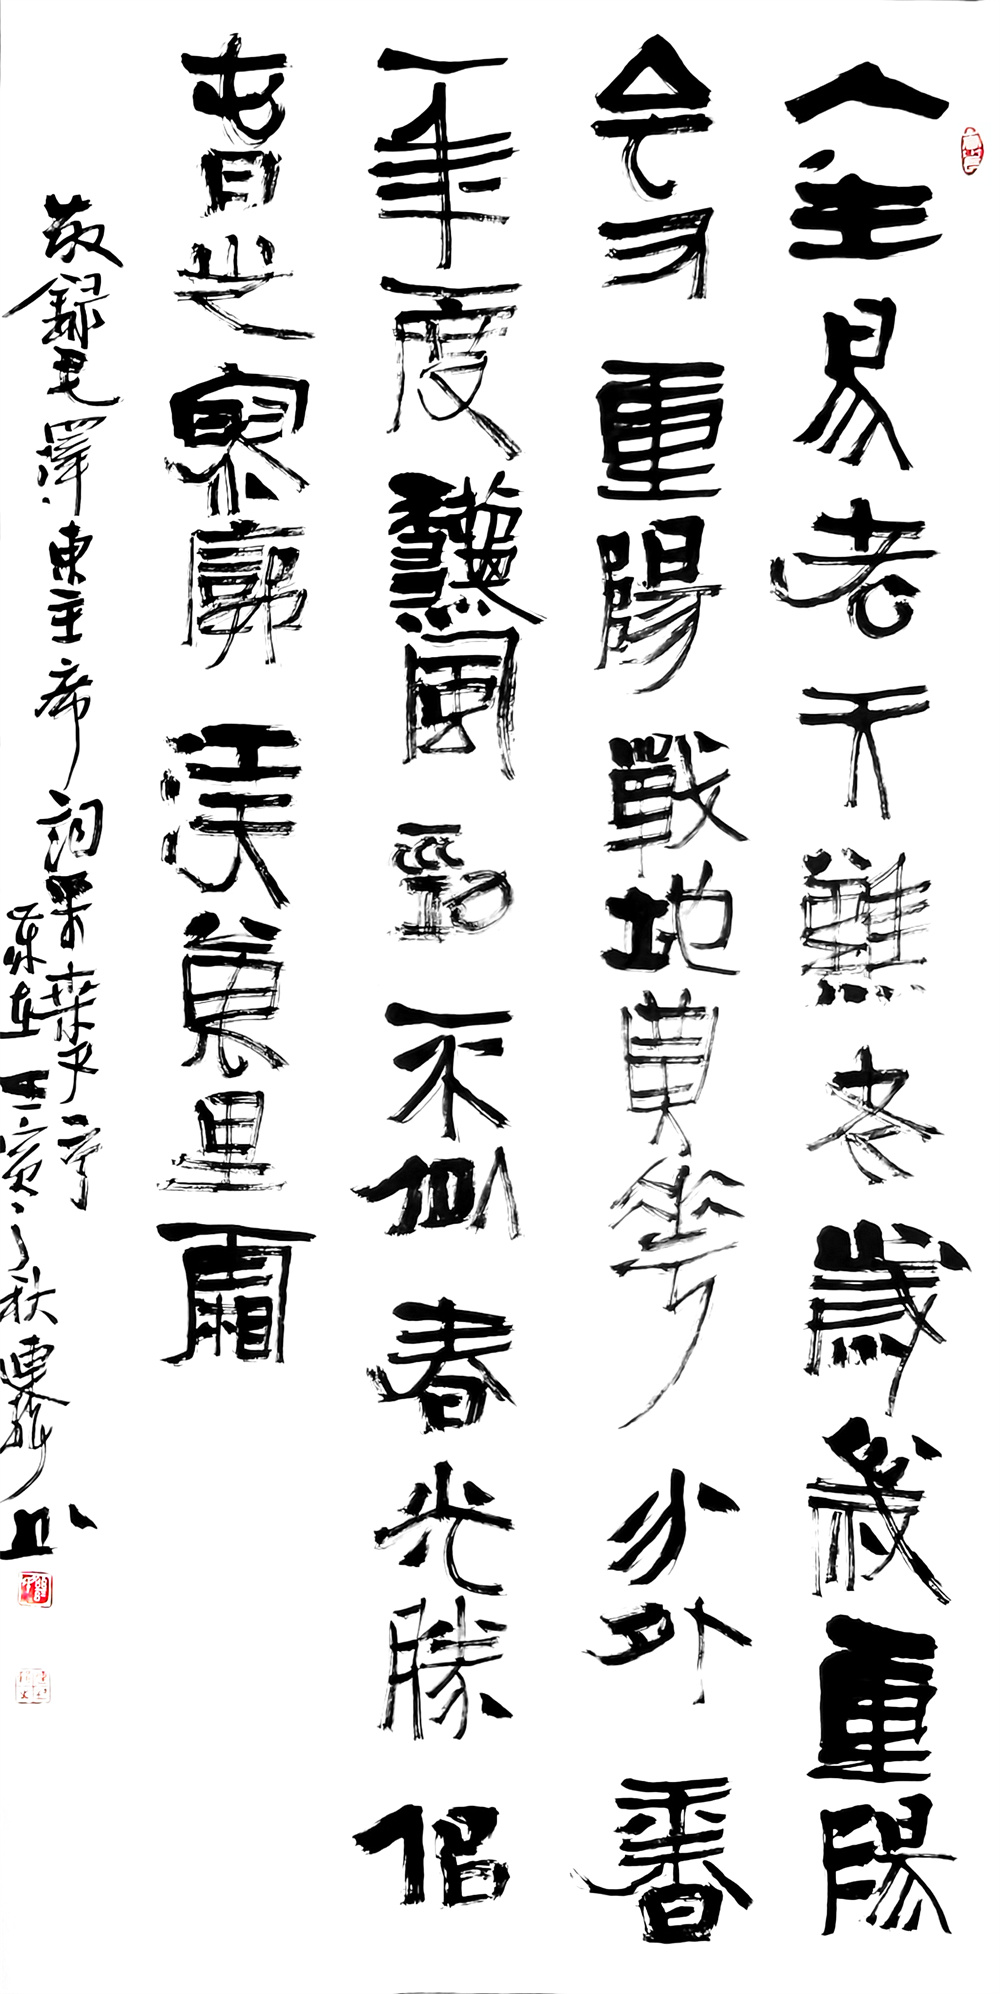 人生易老天難老歲歲重陽
今又重陽戰地黃花分外香
一年一度龝風勁不似春光勝佀
旾光寥廓江天萬里霜
敬錄毛澤東主席詞采桑子
壬寅之秋